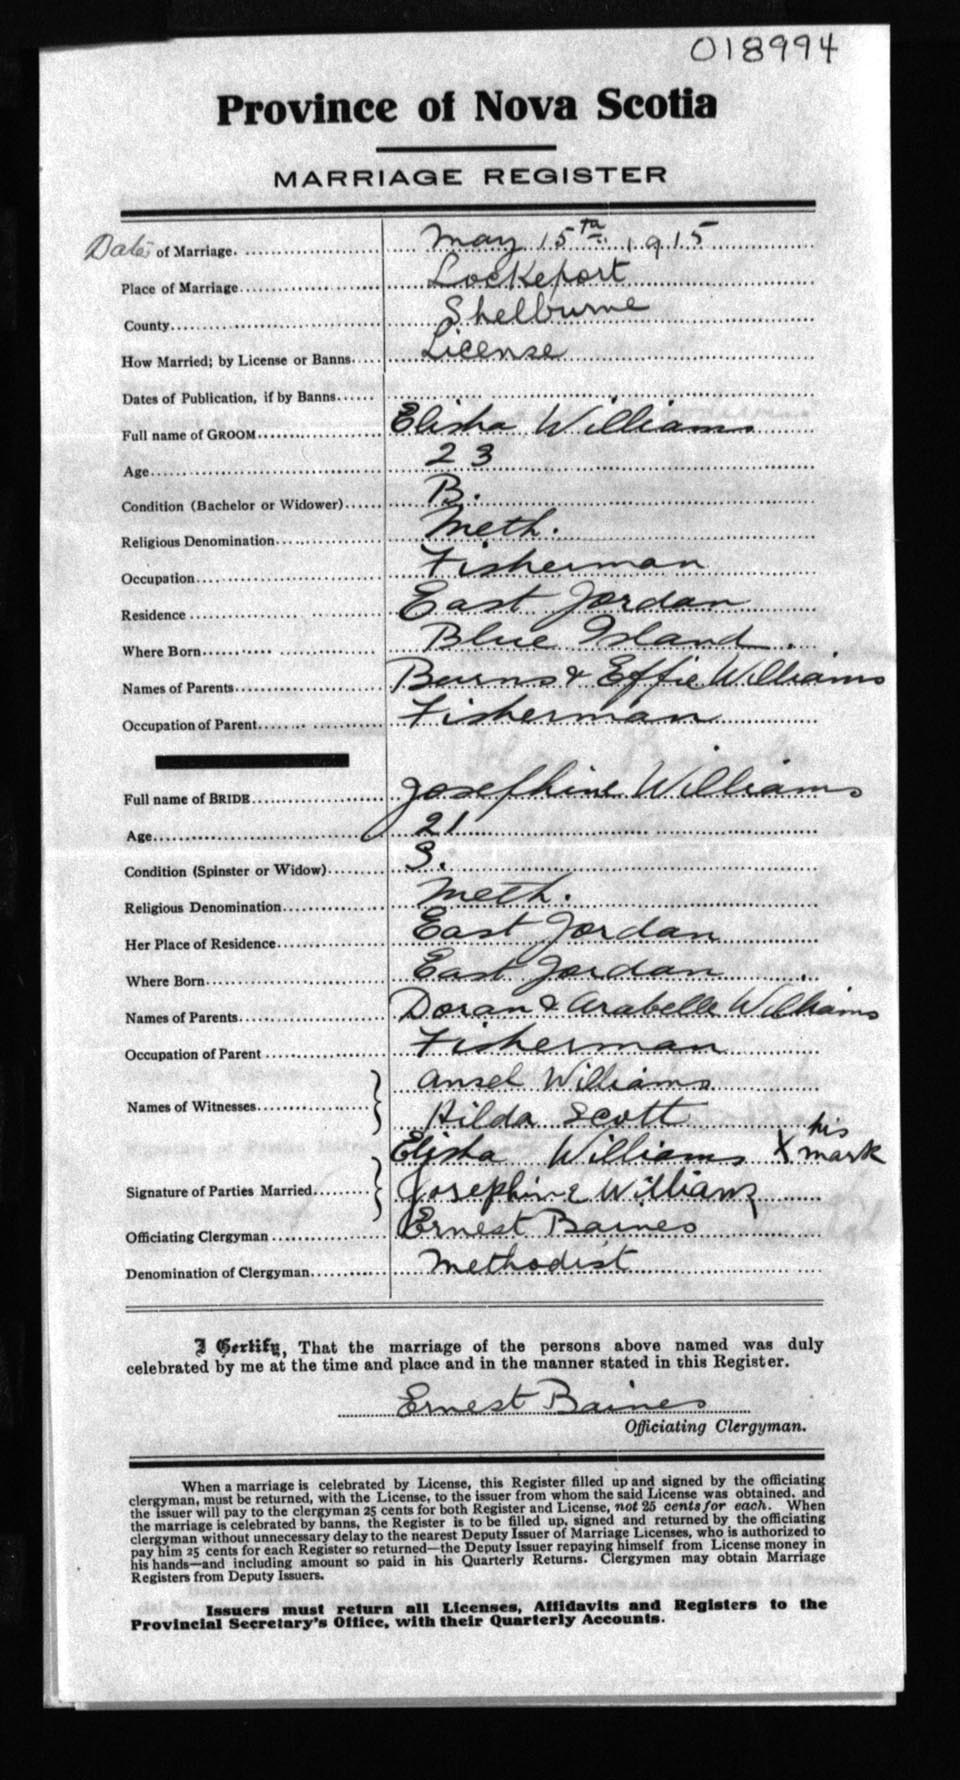 018994
Province of Nova Scotia
MARRIAGE REGISTER
Date of Marriage. May 15th 1915
Place of Marriage Lockeport
County Shelburne
How Married; by License or Banns License
Dates of Publication, if by Banns
Full name of GROOM Elisha Williams
Age 23
Condition (Bachelor or Widower) B.
Religious Denomination Meth.
Occupation Fisherman
Residence East Jordan
Where Born Blue Island.
Names of Parents Burns & Effie Williams
Occupation of Parent Fisherman
Full name of BRIDE Josephine Williams
Age 21
Condition (Spinster or Widow) S.
Religious Denomination Meth.
Her Place of Residence East Jordan
Where Born East Jordan
Names of Parents Doran & Arabelle Williams
Occupation of Parent Fisherman
Names of Witnesses Ansel Williams
Hilda Scott
Elisha Williams X his mark
Signature of Parties Married Josephine Williams
Officiating Clergyman Ernest Baines
Denomination of Clergyman Methodist
I Certify, That the marriage of the persons above named was duly
celebrated by me at the time and place and in the manner stated in this Register.
Ernest Baines
Officiating Clergyman.
When a marriage is celebrated by License, this Register filled up and signed by the officiating
clergyman, must be returned, with the License, to the issuer from whom the said License was obtained, and
the issuer will pay to the clergyman 25 cents for both Register and License, not 25 cents for each. When
the marriage is celebrated by banns, the Register is to be filled up, signed and returned by the officiating
clergyman without unnecessary delay to the nearest Deputy Issuer of Marriage Licenses, who is authorized to
pay him 25 cents for each Register so returned—the Deputy Issuer repaying himself from License money in
his hands—and including amount so paid in his Quarterly Returns. Clergymen may obtain Marriage
Registers from Deputy Issuers.
Issuers must return all Licenses, Affidavits and Registers to the
Provincial Secretary's Office, with their Quarterly Accounts.